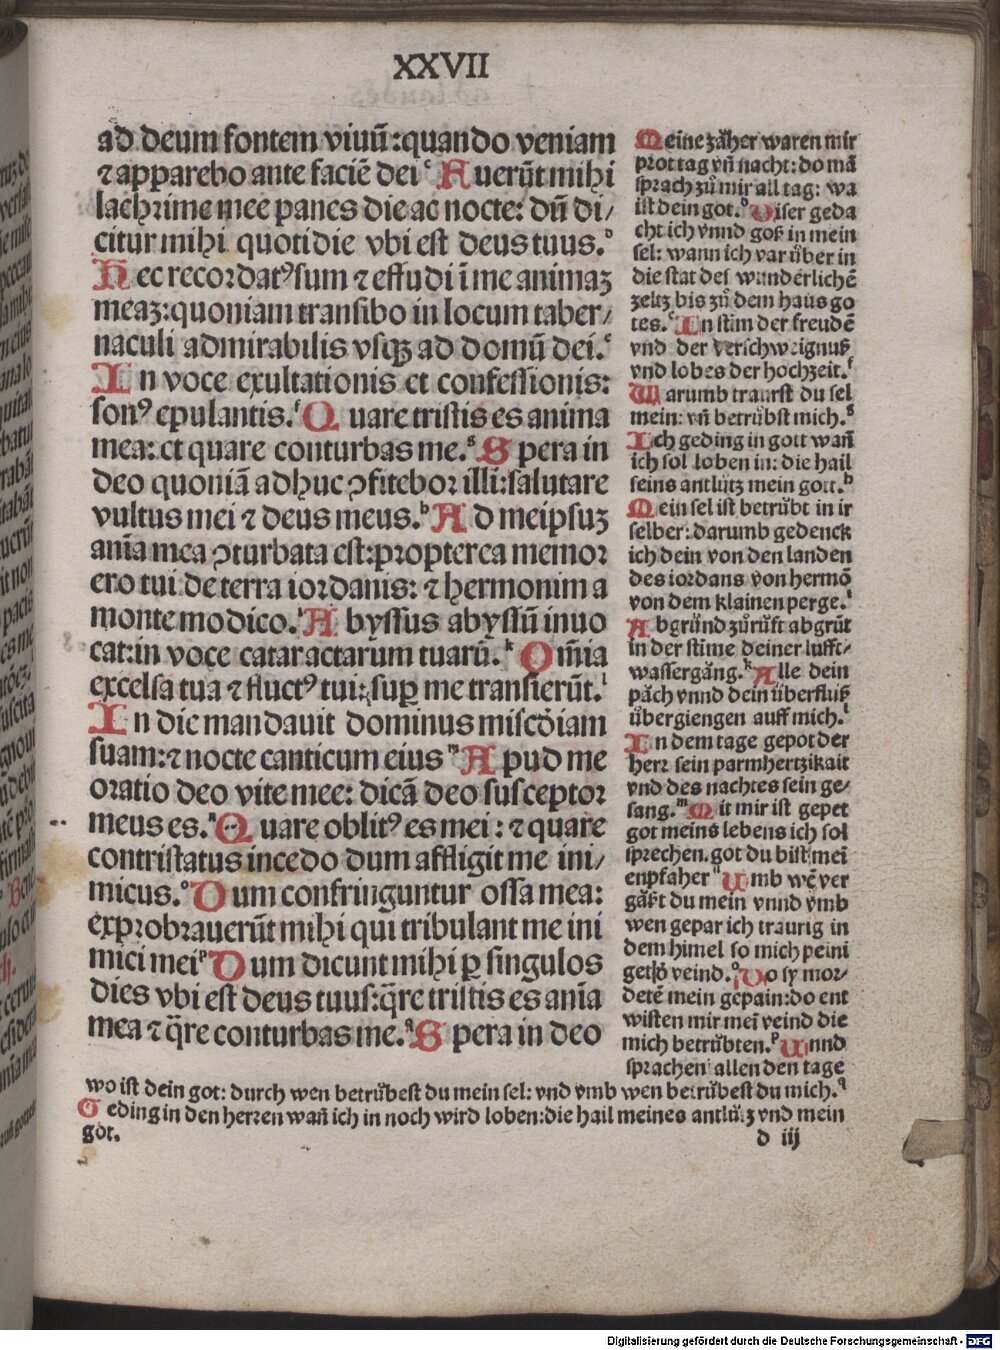 XXVII
ad deum fontem viuū:quando veniam
⁊ apparebo ante faciē dei Auerūt mihi
lachrime mee panes die ac nocte: dū di/
citur mihi quotidie vbi est deus tuus.
Hec recordatꝰ sum ⁊ effudi ī me animaꝫ
meaꝫ:quoniam transibo in locum taber/
naculi admirabilis vsqꝫ ad domū dei.
In voce exultationis et confessionis:
sonꝰ epulantis. Quare tristis es anima
mea: et quare conturbas me. Spera in
deo quoniā adhuc ꝯfitebor illi:salutare
vultus mei ⁊ deus meus. Ad meipsuꝫ
anīa mea ꝯturbata est:propterea memor
ero tui de terra iordanis: ⁊ hermonim a
monte modico. Abyssus abyssū inuo
cat:in voce cataractarum tuarū. Om̄ia
excelsa tua ⁊ fluctꝰ tui: sup̱ me transierūt.
In die mandauit dominus misc̄diam
suam:⁊ nocte canticum eius Apud me
oratio deo vite mee: dicā deo susceptor
meus es. Quare oblitꝰ es mei: ⁊ quare
contristatus incedo dum affligit me ini/
micus. Dum confringuntur ossa mea:
exprobrauerūt mihi qui tribulant me ini
mici mei Dum dicunt mihi ꝑ singulos
dies vbi est deus tuus:q̄re tristis es anīa
mea ⁊ q̄re conturbas me. Spera in deo
Meine zäher waren mir
prot tag vn̄ nacht: do mā
sprach zů mir all tag: wa
ist dein got. Diser geda
cht ich vnnd goß in mein
sel: wann ich var über in
die stat des wunderlichē
zeltz bis zů dem haus go
tes. In stim der freudē
vnd der verschweignuß
vnd lobes der hochzeit.
Warumb traurst du sel
mein: vn̄ betrübst mich.
Ich geding in gott wan̄
ich sol loben in: die hail
seins antlütz mein gott.
Mein sel ist betrübt in ir
selber: darumb gedenck
ich dein von den landen
des iordans von hermō
von dem klainen perge.
Abgründ zůrüft abgrüt
in der stime deiner lufft-
wassergāng. Alle dein
päch vnnd dein überfluß
übergiengen auff mich.
In dem tage gepot der
herr sein parmhertzikait
vnd des nachtes sein ge-
sang. Mit mir ist gepet
got meins lebens ich sol
sprechen. got du bist meī
enpfaher Umb wē ver
gäßt du mein vnnd vmb
wen gepar ich traurig in
dem himel so mich peini
get ð veind. Do sy mor-
detē mein gepain:do ent
wisten mir meī veind die
mich betrübten. Unnd
sprachen allen den tage
wo ist dein got: durch wen betrübest du mein sel: vnd vmb wen betrübest du mich.
Geding in den herren wan̄ ich in noch wird loben:die hail meines antlütz vnd mein
got.
d iij
Digitalisierung gefördert durch die Deutsche Forschungsgemeinschaft - DFG